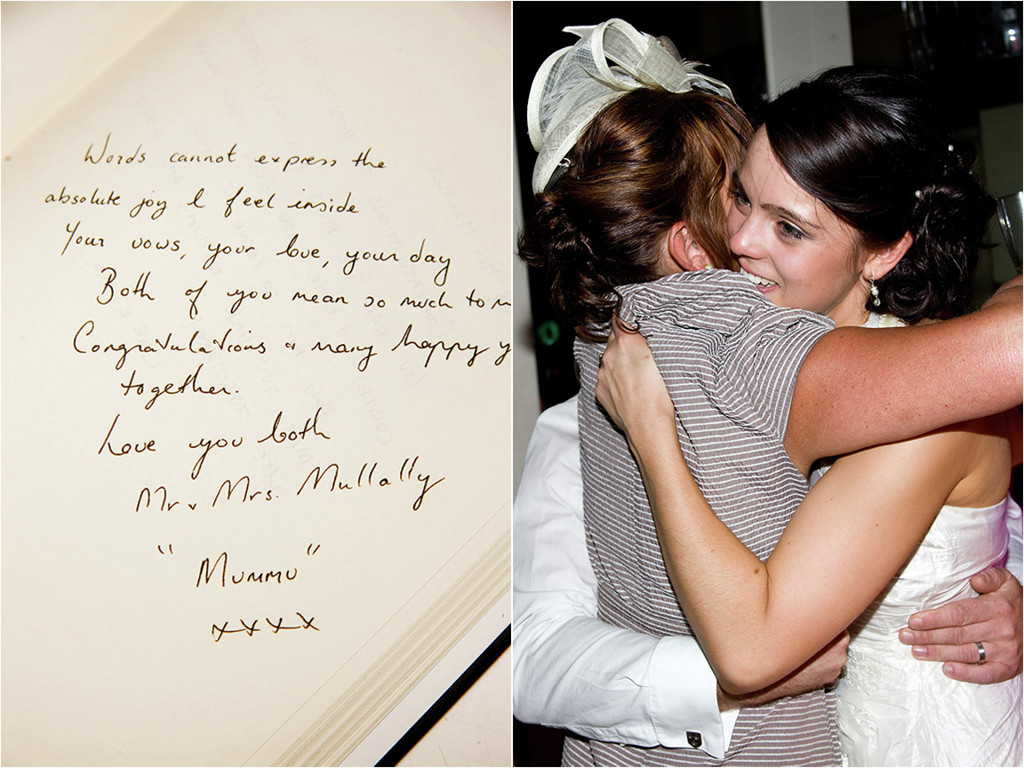 Words cannot express the
absolute joy I feel inside
Your vows, your love, your day
Both of you mean so much to m
Congratulations & many happy y
together.
Love you both
Mr & Mrs. Mullally
"Mummu"
xxxx